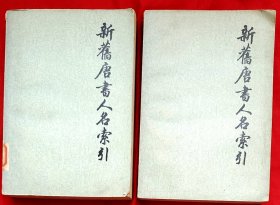 新舊唐書人名索引
新舊唐書人名索引